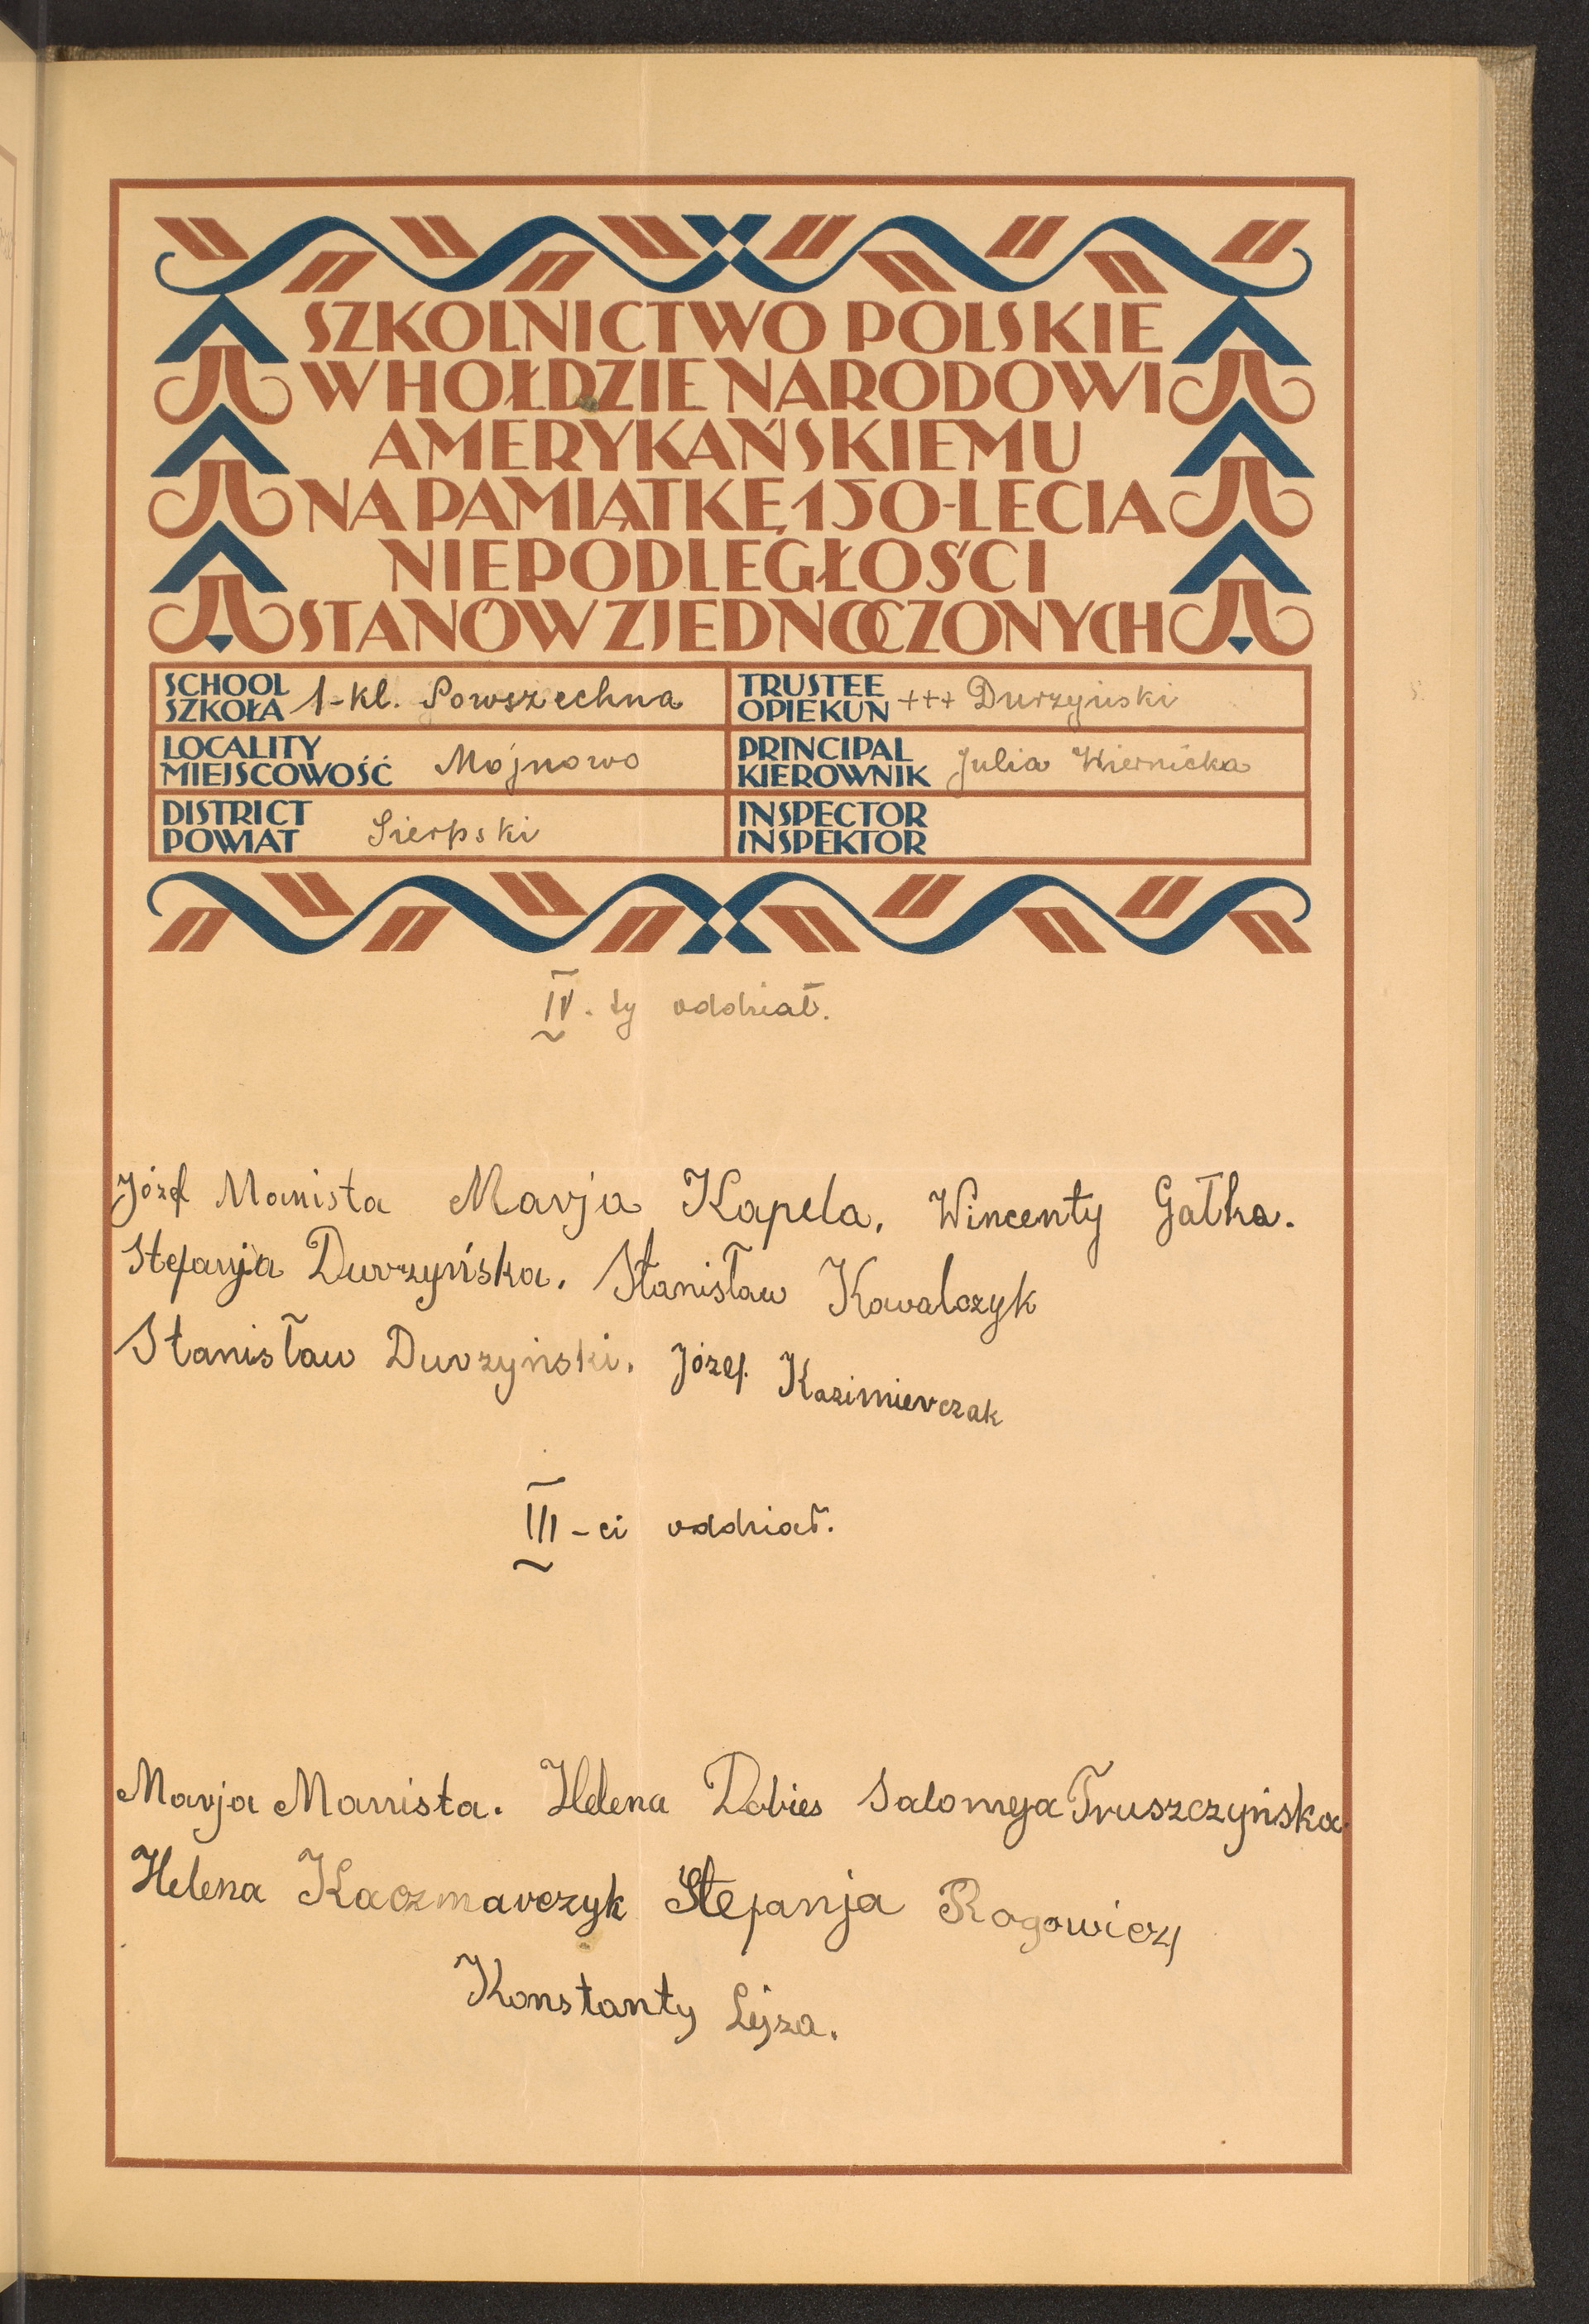 SZKOLNICTWO POLSKIE
W HOŁDZIE NARODOWI
AMERYKAŃSKIEMU
NA PAMIĄTKĘ 150-LECIA
NIEPODLEGŁOŚCI
STANÓW ZJEDNOCZONYCH
SCHOOL SZKOŁA 1-kl. Powszechna
TRUSTEE OPIEKUN +++ Durzyński
LOCALITY MIEJSCOWOŚĆ Mojnowo
PRINCIPAL KIEROWNIK Julia Wiernicka
DISTRICT POWIAT Sierpski
INSPECTOR INSPEKTOR
IV-ty oddział.
Józef Manista Marja Kapela. Wincenty Gałka.
Stefanja Durzyńska. Stanisław Kowalczyk
Stanisław Durzyński. Józef Kazimierczak
III-ci oddział.
Marja Manista. Helena Dobies Salomeja Truszczyńska.
Helena Kaczmarczyk Stefanja Rogowicz
Konstanty Lejza.